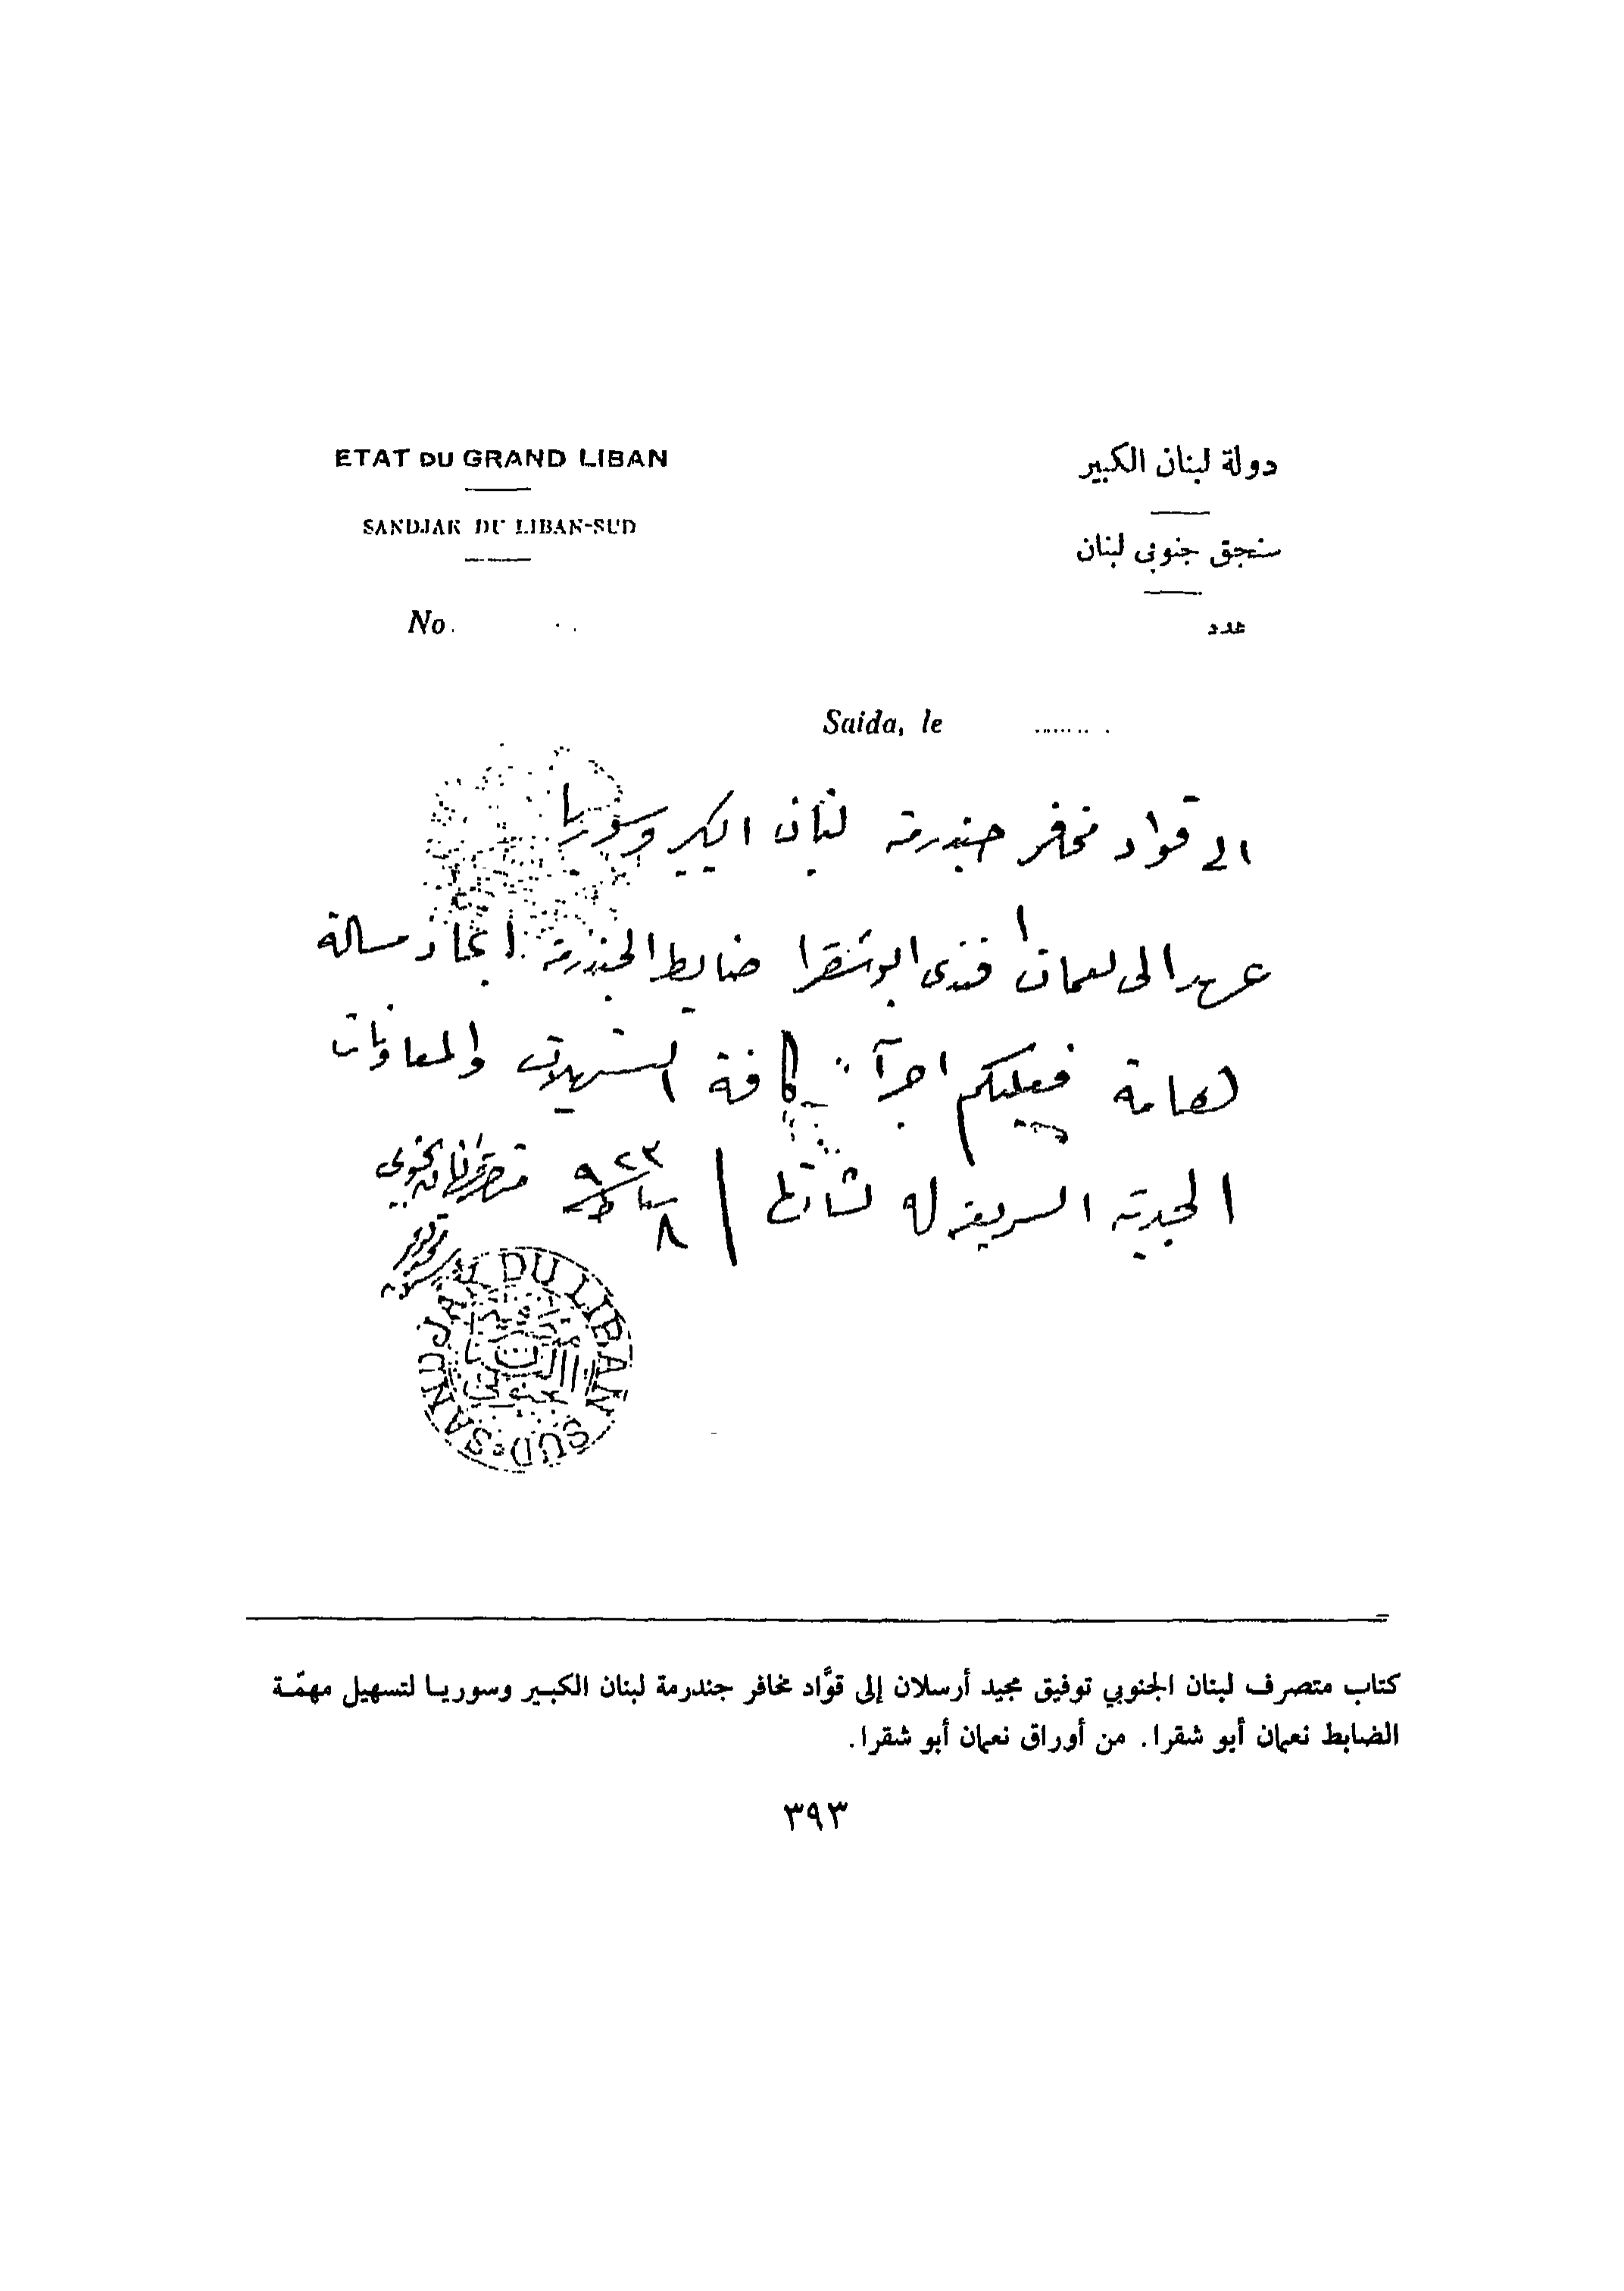 ETAT DU GRAND LIBAN
دولة لبنان الكبير
SANDJAK DU LIBAN-SUD
سنجق جنوبي لبنان
No.
عدد
Saida, le
الى قواد مخافر جندرمة لبنان الكبير وسوريا
عهد الى نعمان افندي ابو شقرا ضابط الجندرمة انجاز مسالة
هامة فعليكم اجرآء كافة التسهيلات والمعاونات
الجدية السريعة له
٨ شباط ٩٢٣
متصرف لبنان الجنوبي
توفيق
SANDJAK DU LIBAN SUD
كتاب متصرف لبنان الجنوبي توفيق مجيد أرسلان إلى قوَّاد مخافر جندرمة لبنان الكبير وسوريا لتسهيل مهمّة
الضابط نعمان أبو شقرا. من أوراق نعمان أبو شقرا.
٣٩٣